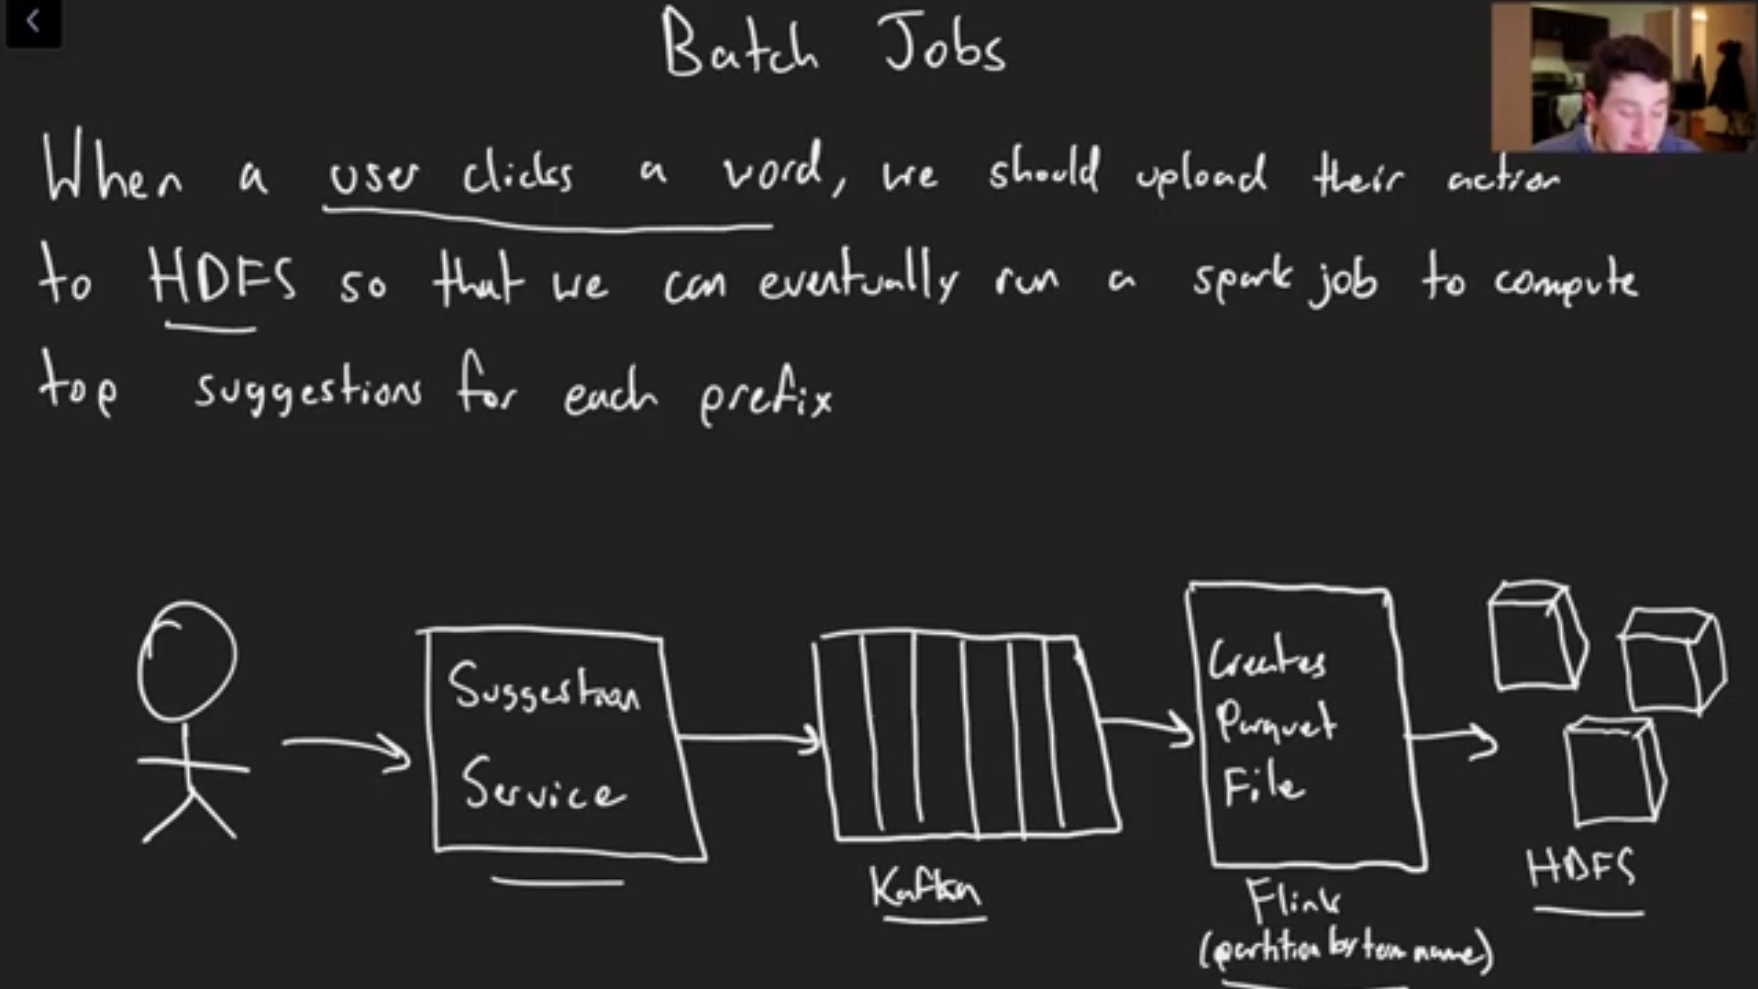 Batch Jobs
When a user clicks a word, we should upload their action
to HDFS so that we can eventually run a spark job to compute
top suggestions for each prefix
Suggestion
Service
Kafka
Creates
Parquet
File
Flink
(partition by term name)
HDFS